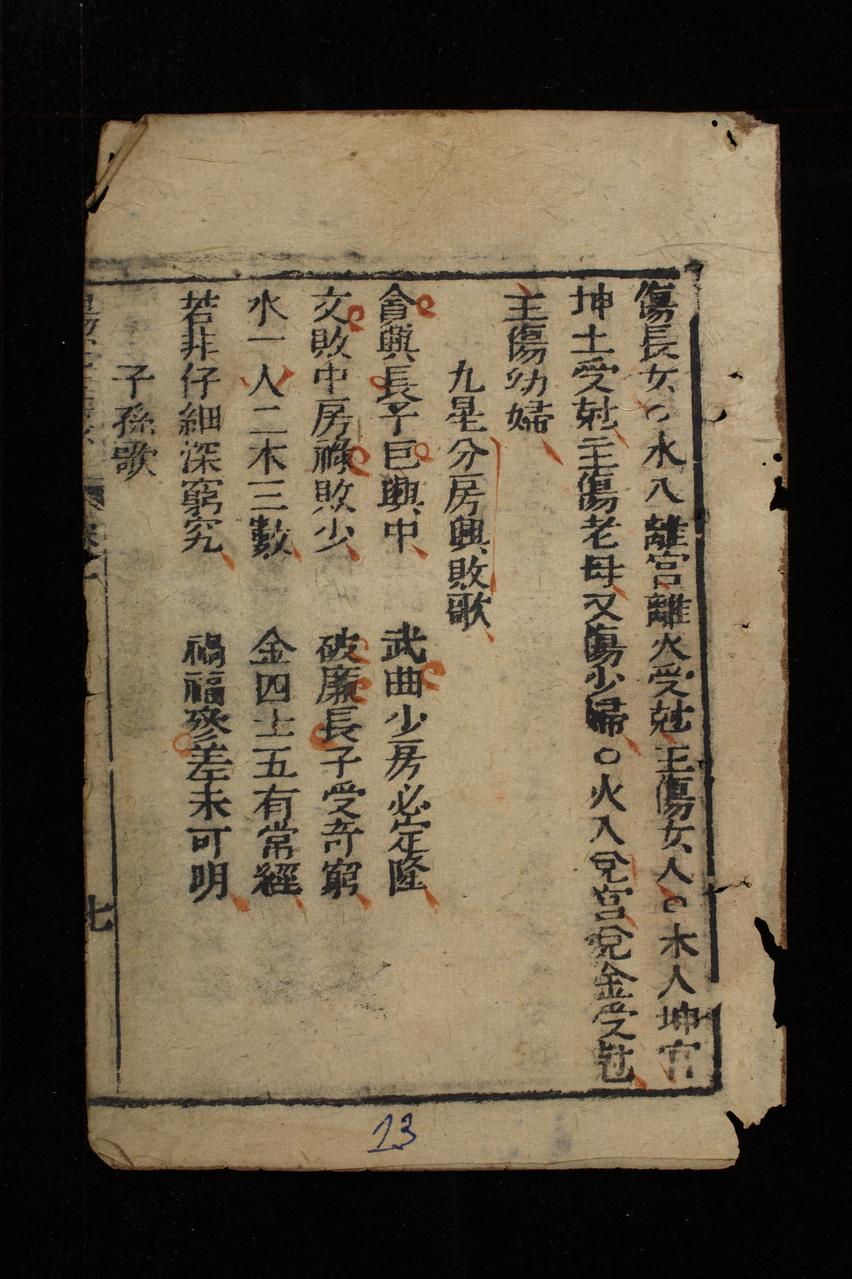 傷長女○水入離宮離火受尅主傷女人○木入坤宮
坤土受尅主傷老母又傷少婦○火入兌宮兌金受尅
主傷幼婦
九星分房興敗歌
貪興長子巨興中 武曲少房必定隆
文敗中房祿敗少 破廉長子受奇窮
水一人二木三數 金四土五有常經
若非仔細深窮究 禍福參差未可明
子孫歌
七
23